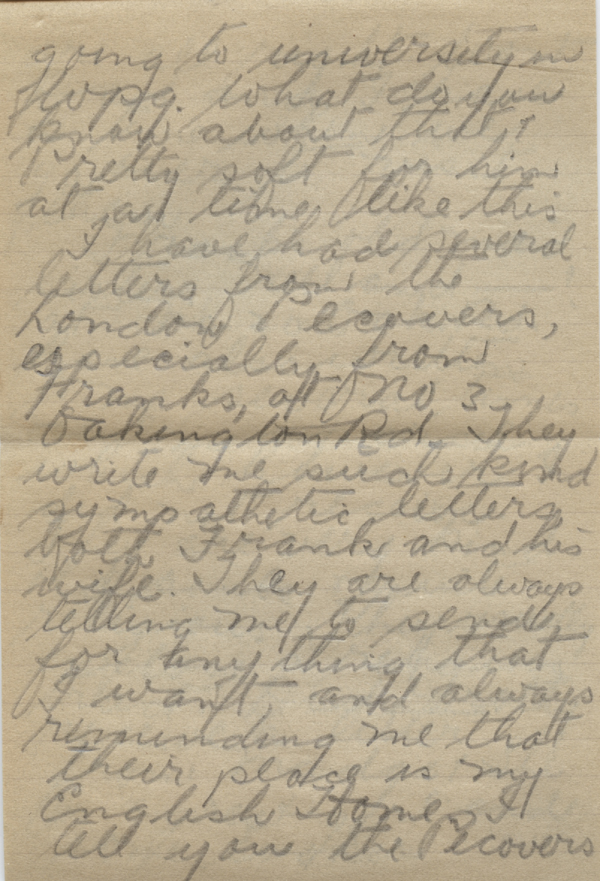 going to university in
Wpg. What do you
know about that?
Pretty soft for him
at a time like this
I have had several
letters from the
London Pecovers,
especially from
Franks, at No 3
Oakington Rd. They
write me such kind
sympathetic letters,
both Frank and his
wife. They are always
telling me to send
for any thing that
I want, and always
reminding me that
their place is my
English Home. I
tell you the Pecovers